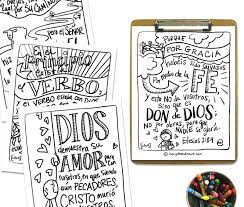 por Su CAMINO
pero el SEÑOR
En el
principio
el
VERBO,
y el VERBO estaba con
DIOS
demuestra
Su
AMOR
en que siendo
aún PECADORES
CRISTO
murió
PORQUE
POR GRACIA
SALVADOS
Por medio de la
FE
esto No de vosotros,
Sino que es
DON de DIOS;
no por obras, para que
Nadie se gloríe.
Efesios 2:8-9